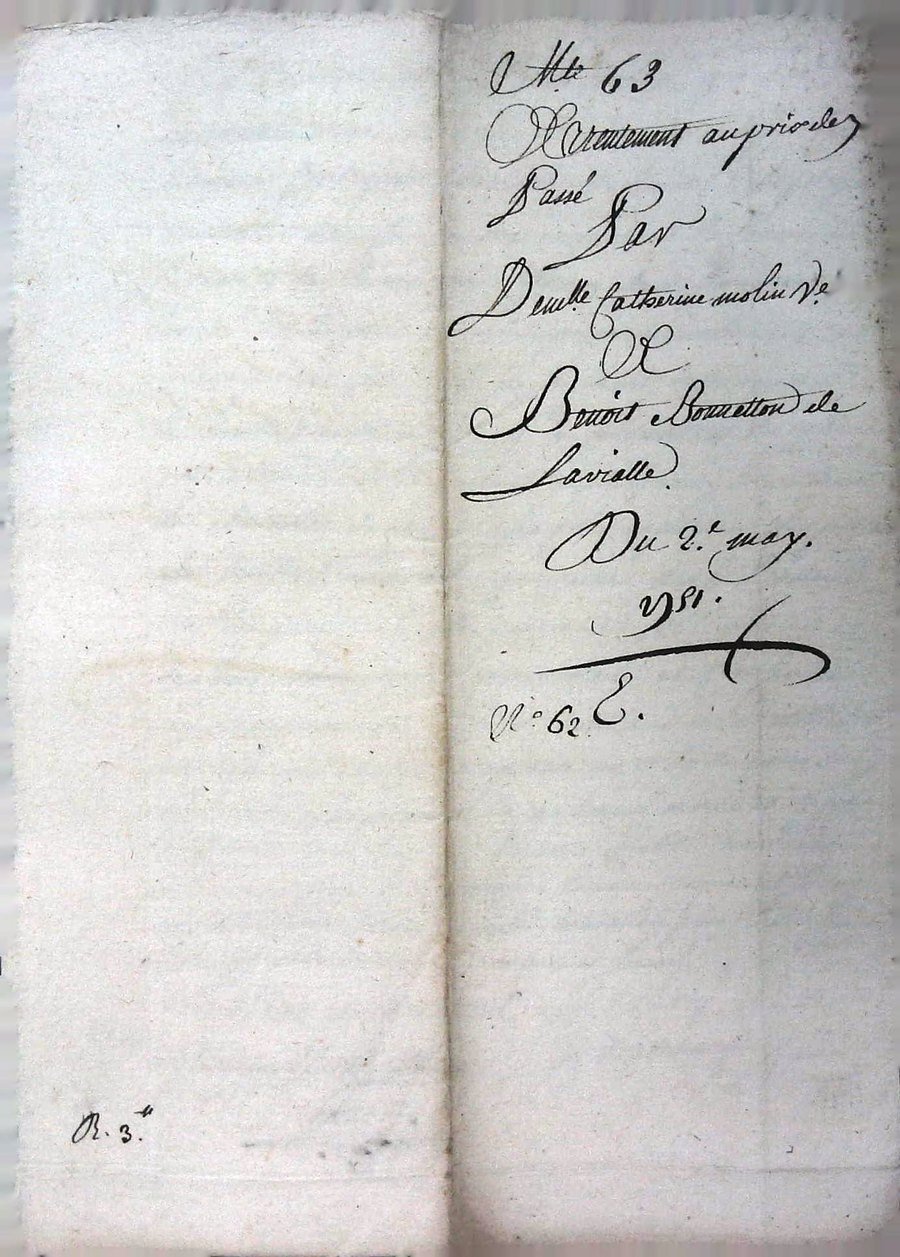 Mte 63
Arrentement au prix de
Passé
Par
Demlle Catherine molin Ve
&
Benoit Bonnetton de
Lavialle
Du 2e may.
1751.
No 62 E.
R. 3."